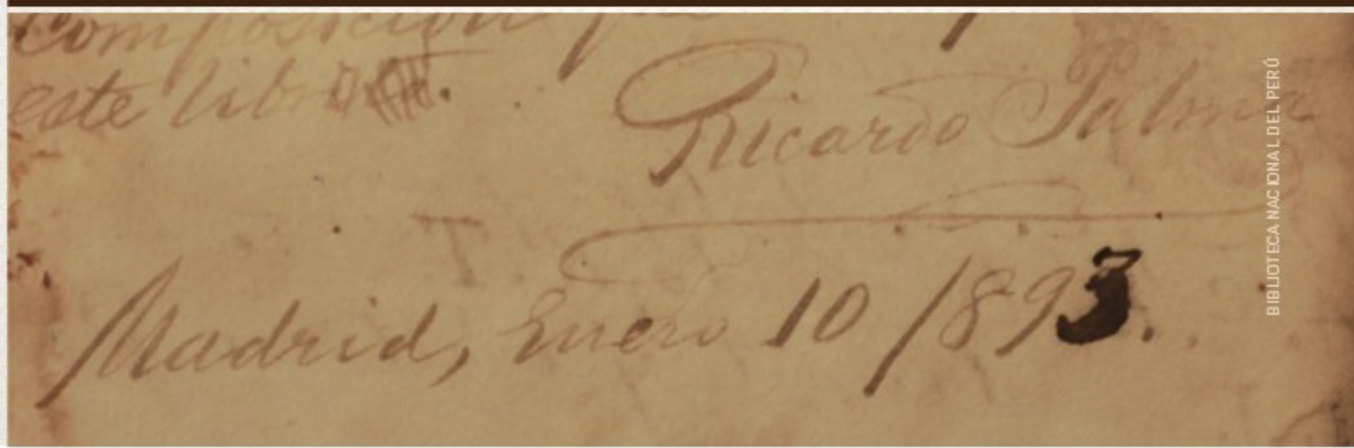 composición
este libro
Ricardo Palma
Madrid, Enero 10 1893.
BIBLIOTECA NACIONAL DEL PERÚ